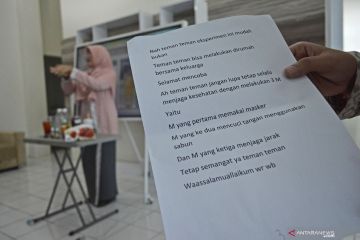 Nah teman teman eksperimen ini mudah
bukan
Teman teman bisa melakukan dirumah
bersama keluarga
Selamat mencoba
Ah teman teman jangan lupa tetap selalu
menjaga kesehatan dengan melakukan 3 M
Yaitu
M yang pertama memakai masker
M yang ke dua mencuci tangan menggunakan
sabun
Dan M yang ketiga menjaga jarak
Tetap semangat ya teman teman
Waassalamuallaikum wr wb
ANTARANEWS